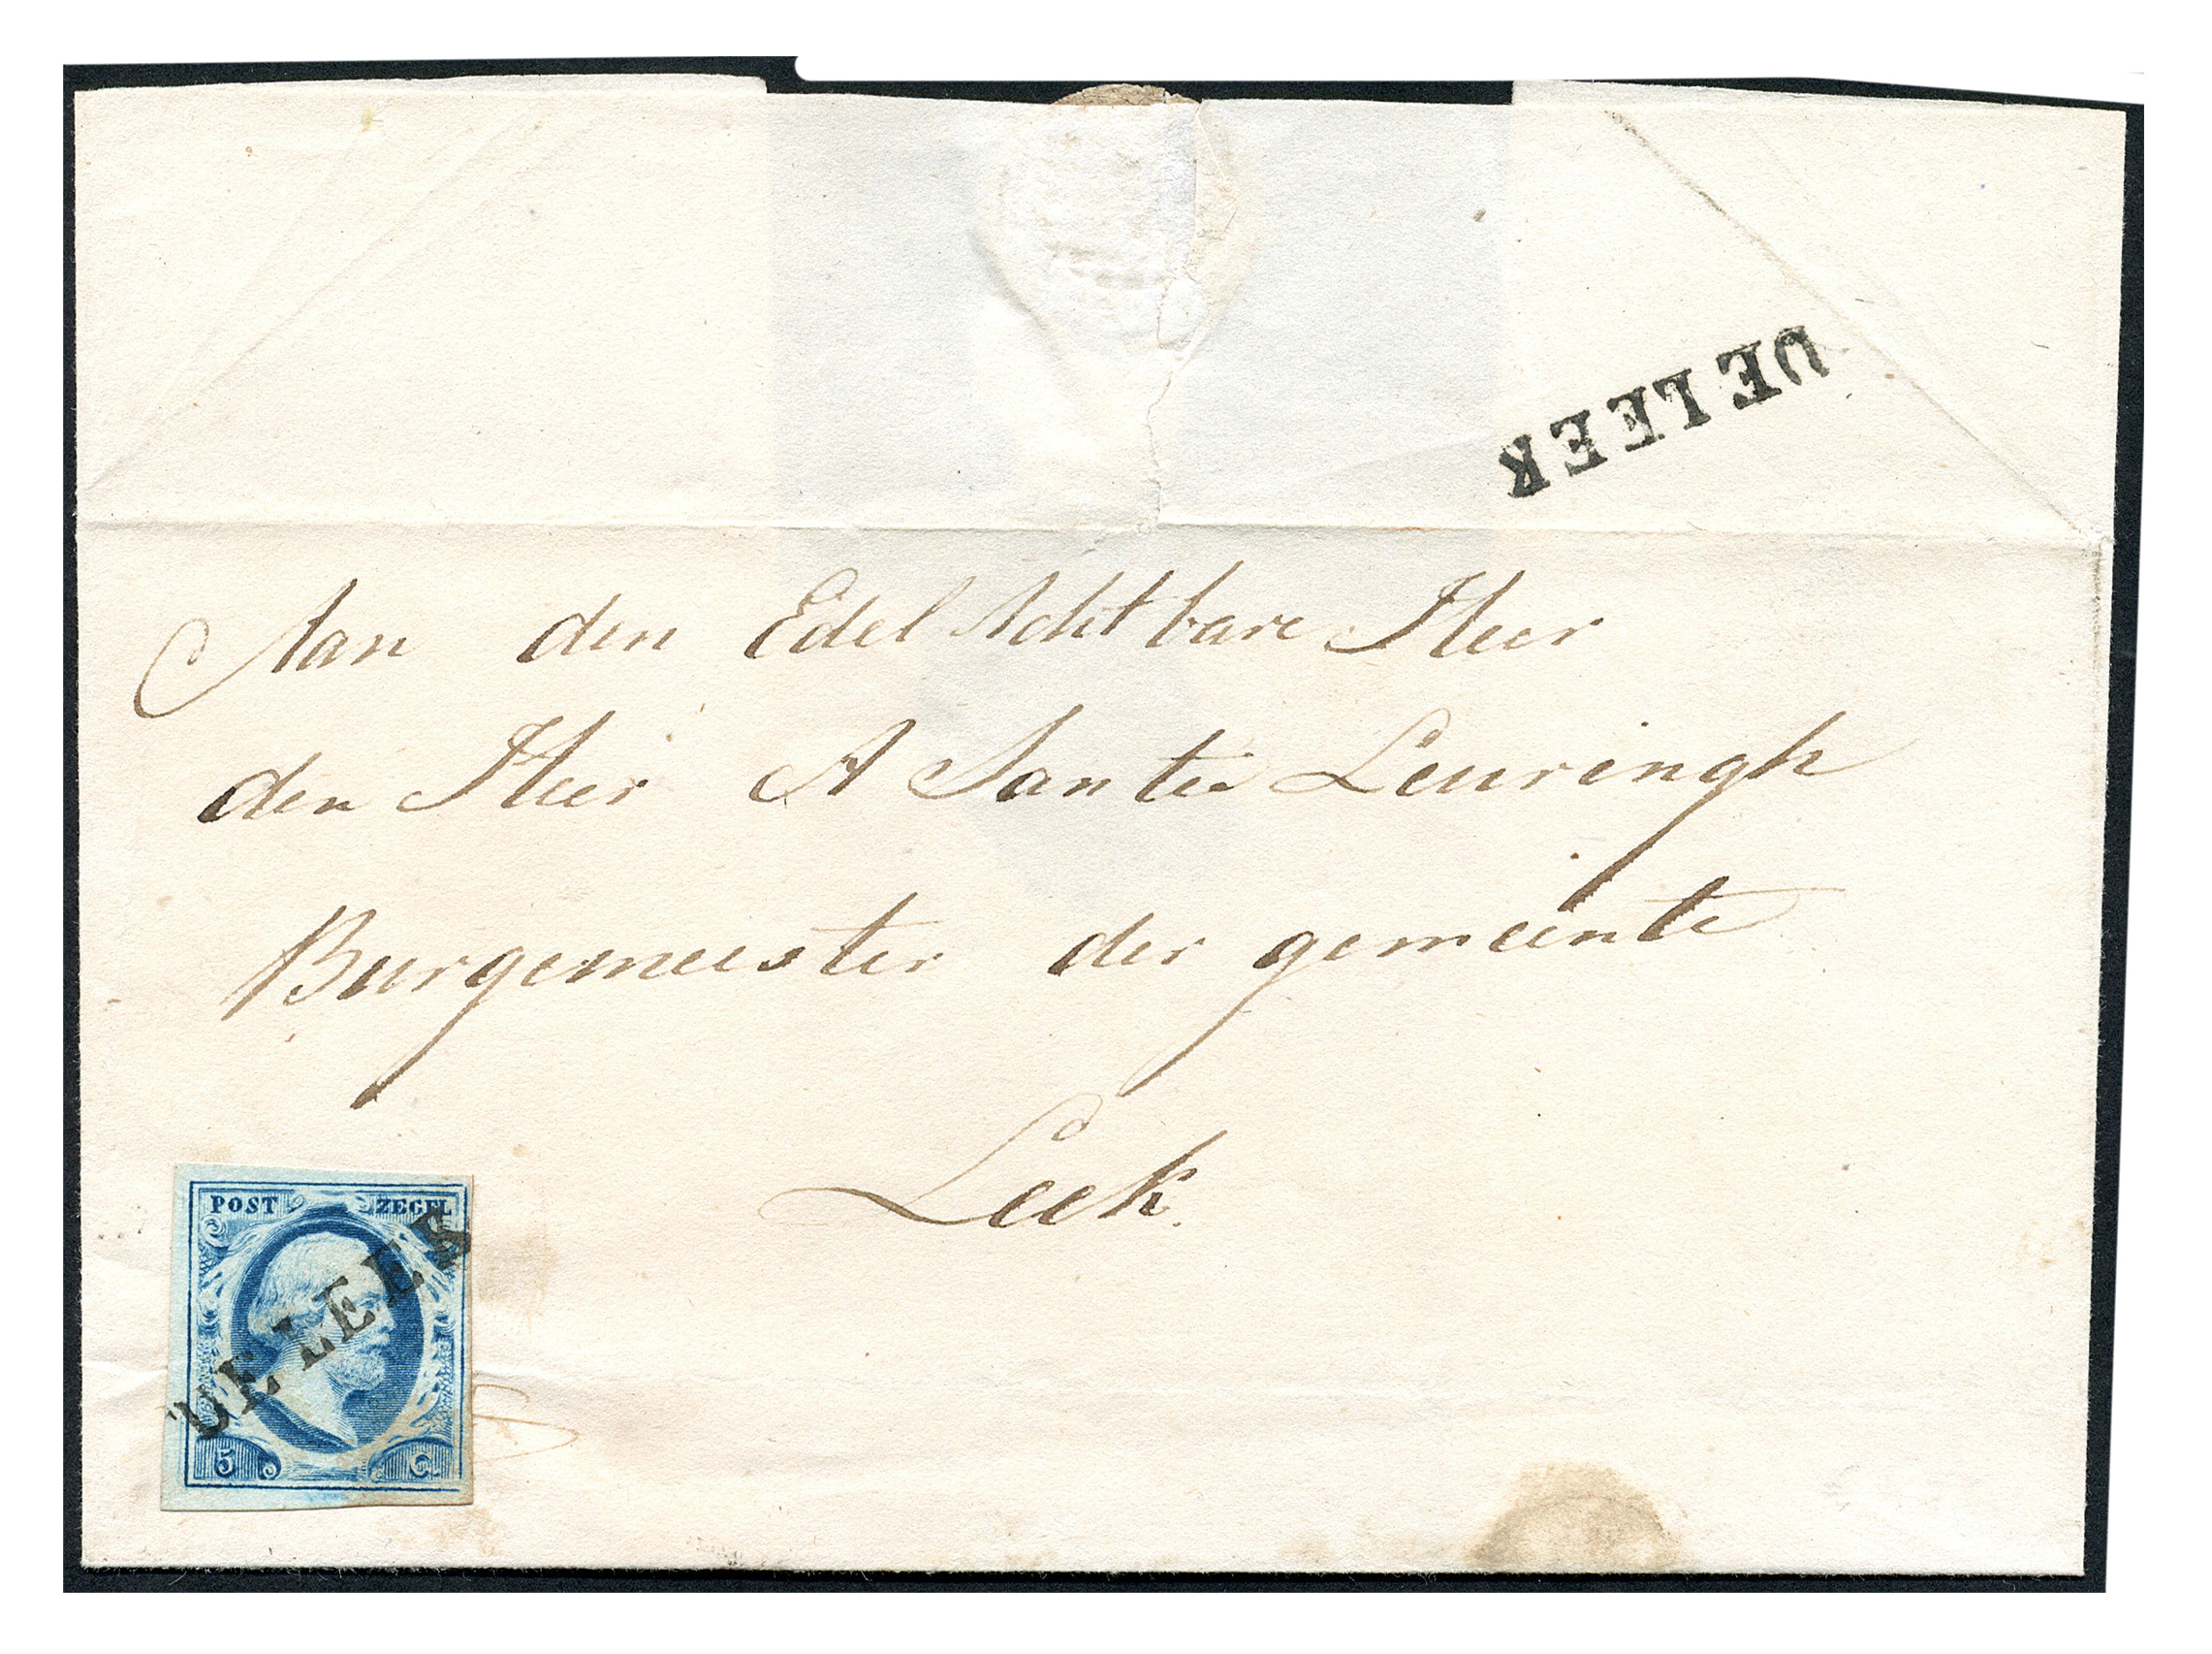 DE LEEK
Aan den Edel Achtbare Heer
den Heer A Santee Leuringh
Burgemeester der gemeente
Leek.
POST ZEGEL
DE LEEK
5 C